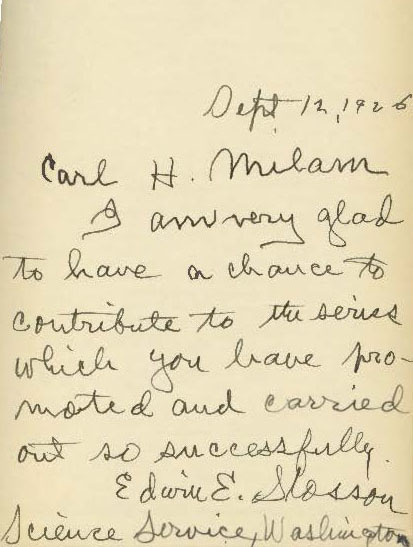 Sept 12, 1926
Carl H. Milam
I am very glad
to have a chance to
contribute to the series
which you have pro-
moted and carried
out so successfully.
Edwin E. Slosson
Science Service, Washington